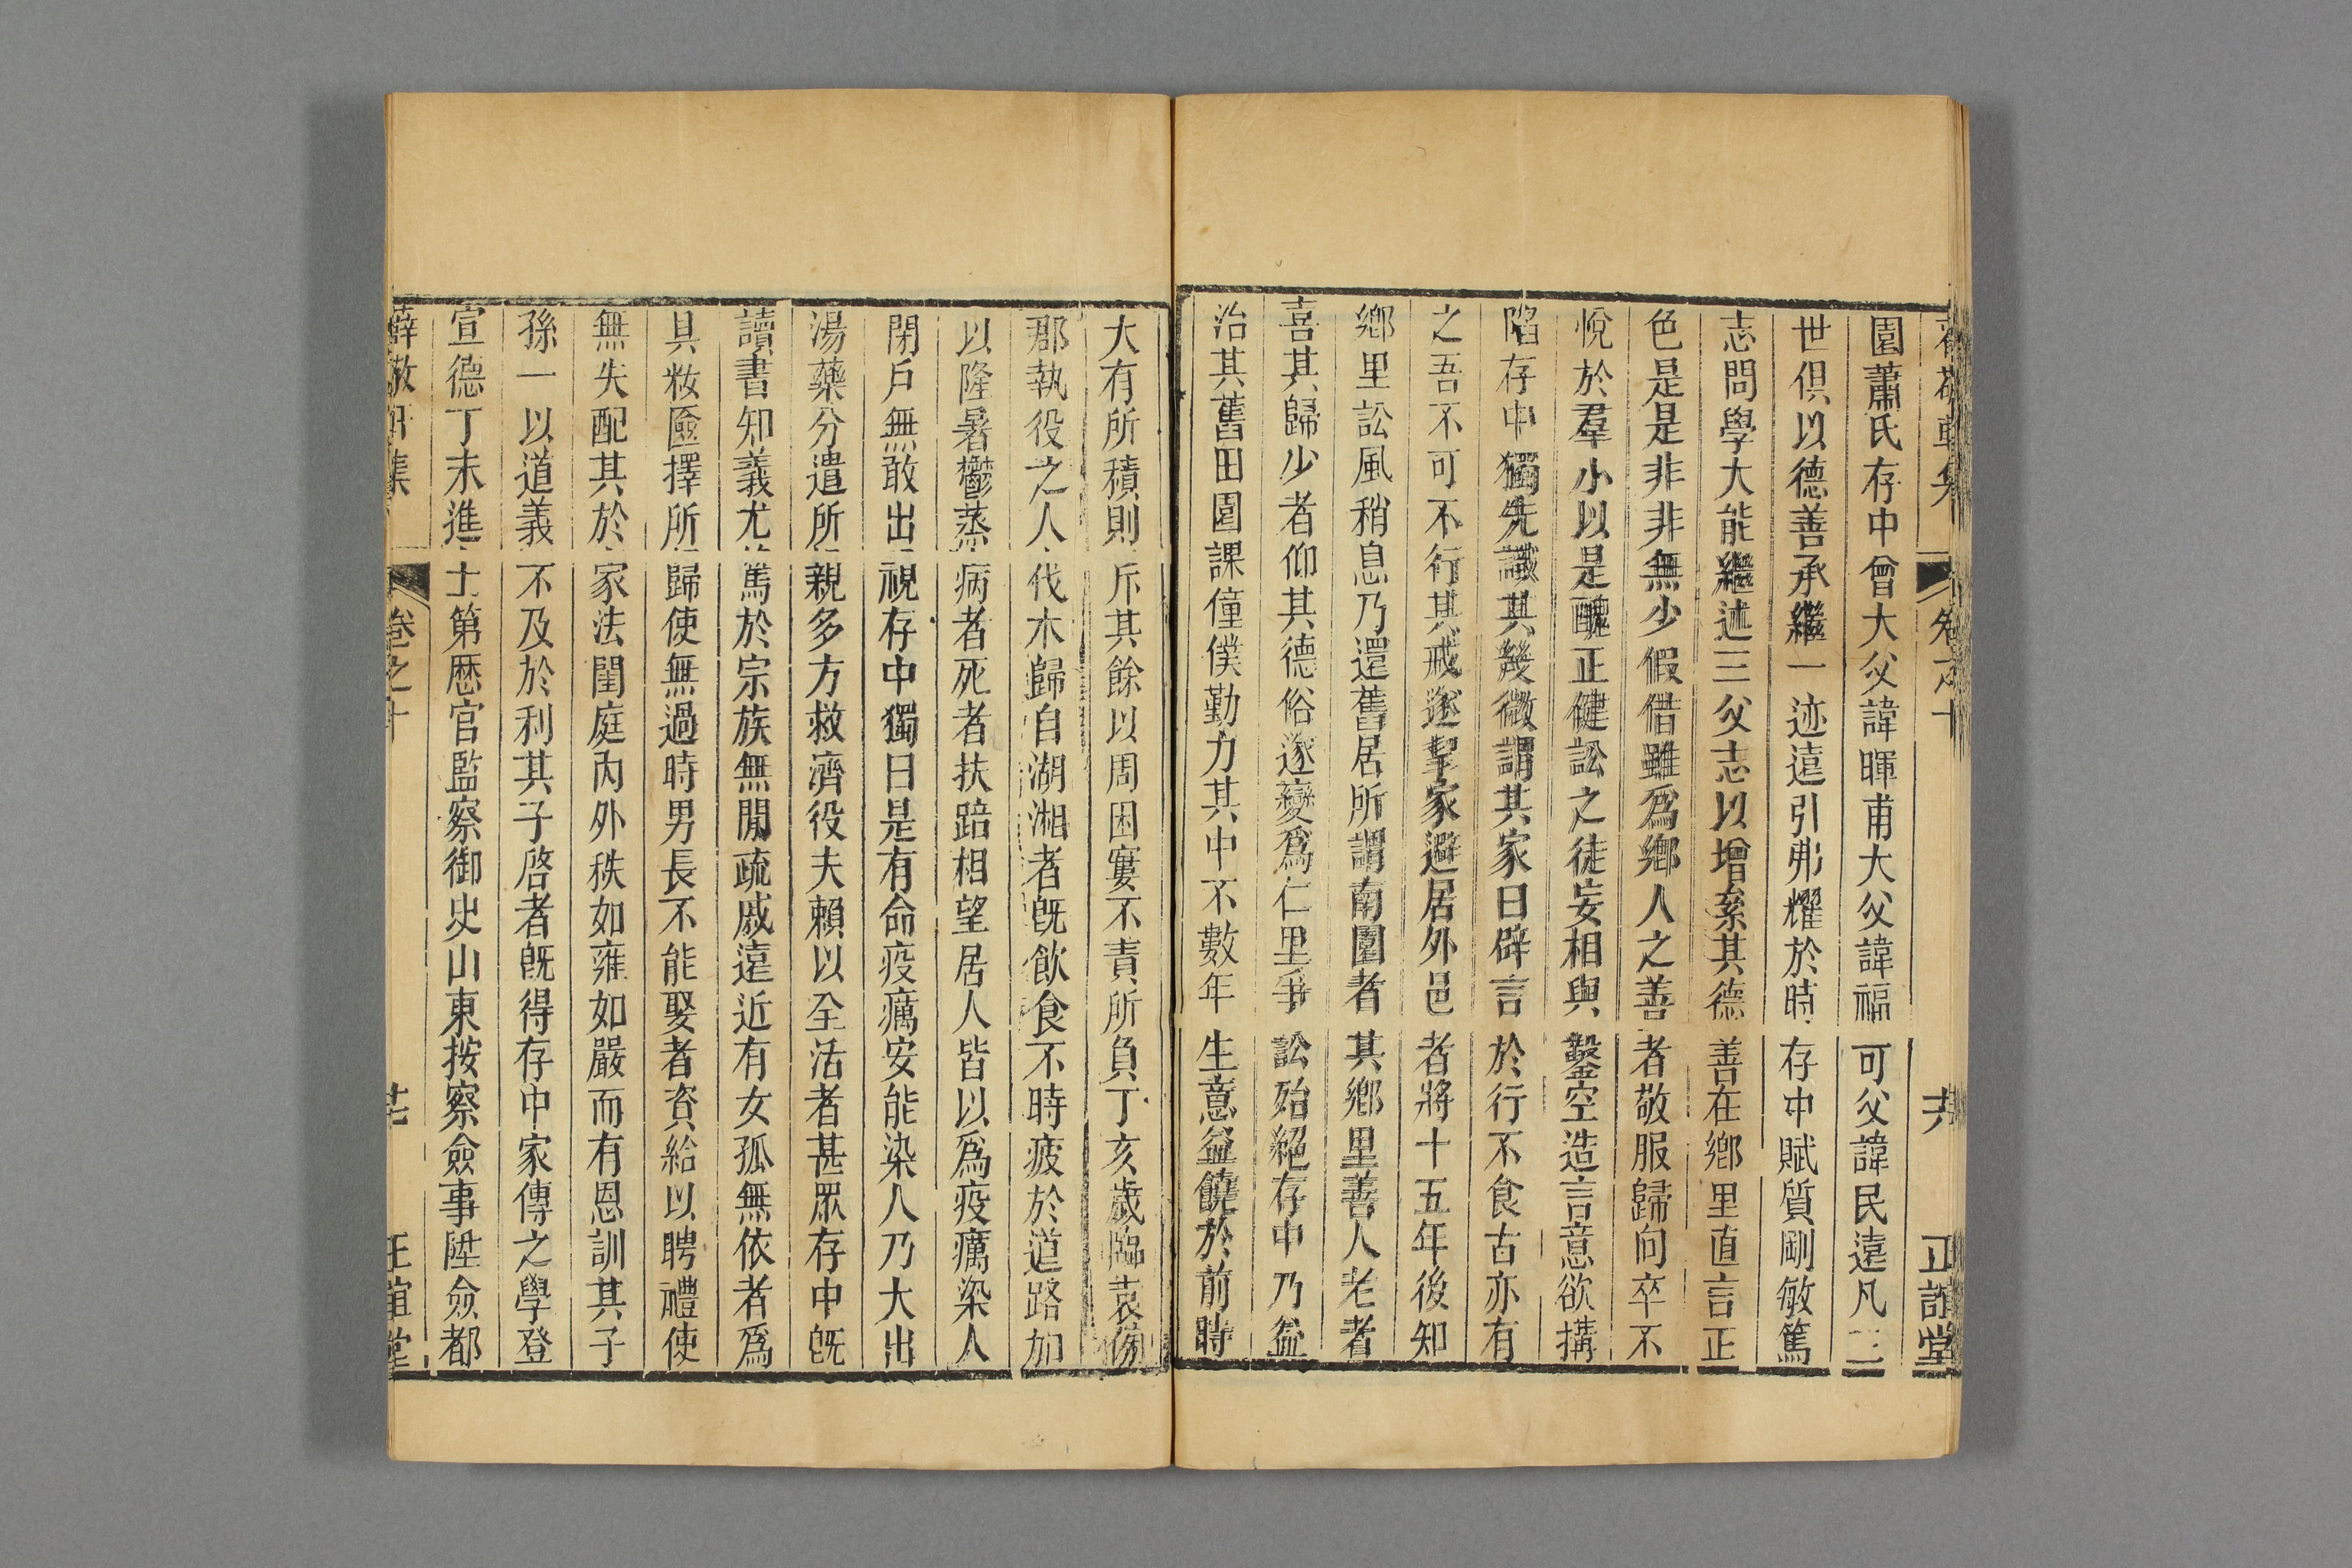 薛敬軒集 卷之十 共 正誼堂
園蕭氏存中曾大父諱暉甫大父諱福可父諱民遠凡三
世俱以德善承繼一迹遠引弗耀於時存中賦質剛敏篤
志問學大能繼述三父志以增絫其德善在鄉里直言正
色是是非非無少假借雖爲鄉人之善者敬服歸向卒不
悅於羣小以是醜正健訟之徒妄相與鑿空造言意欲搆
陷存中獨先識其幾微謂其家曰辟言於行不食古亦有
之吾不可不行其戒遂挈家避居外邑者將十五年後知
鄉里訟風稍息乃還舊居所謂南園者其鄉里善人老者
喜其歸少者仰其德俗遂變爲仁里爭訟殆絕存中乃益
治其舊田園課僮僕勤力其中不數年生意益饒於前時
大有所積則斥其餘以周困窶不責所負丁亥歲臨袁傍
郡執役之人伐木歸自湖湘者旣飲食不時疲於道路加
以隆暑鬱蒸病者死者扶踣相望居人皆以爲疫癘染人
閉戶無敢出視存中獨曰是有命疫癘安能染人乃大出
湯藥分遣所親多方救濟役夫賴以全活者甚眾存中旣
讀書知義尤篤於宗族無閒疏戚遠近有女孤無依者爲
具妝匳擇所歸使無過時男長不能娶者資給以聘禮使
無失配其於家法閨庭內外秩如雍如嚴而有恩訓其子
孫一以道義不及於利其子啓者旣得存中家傳之學登
宣德丁未進士第歷官監察御史山東按察僉事陞僉都
薛敬軒集 卷之十 正誼堂